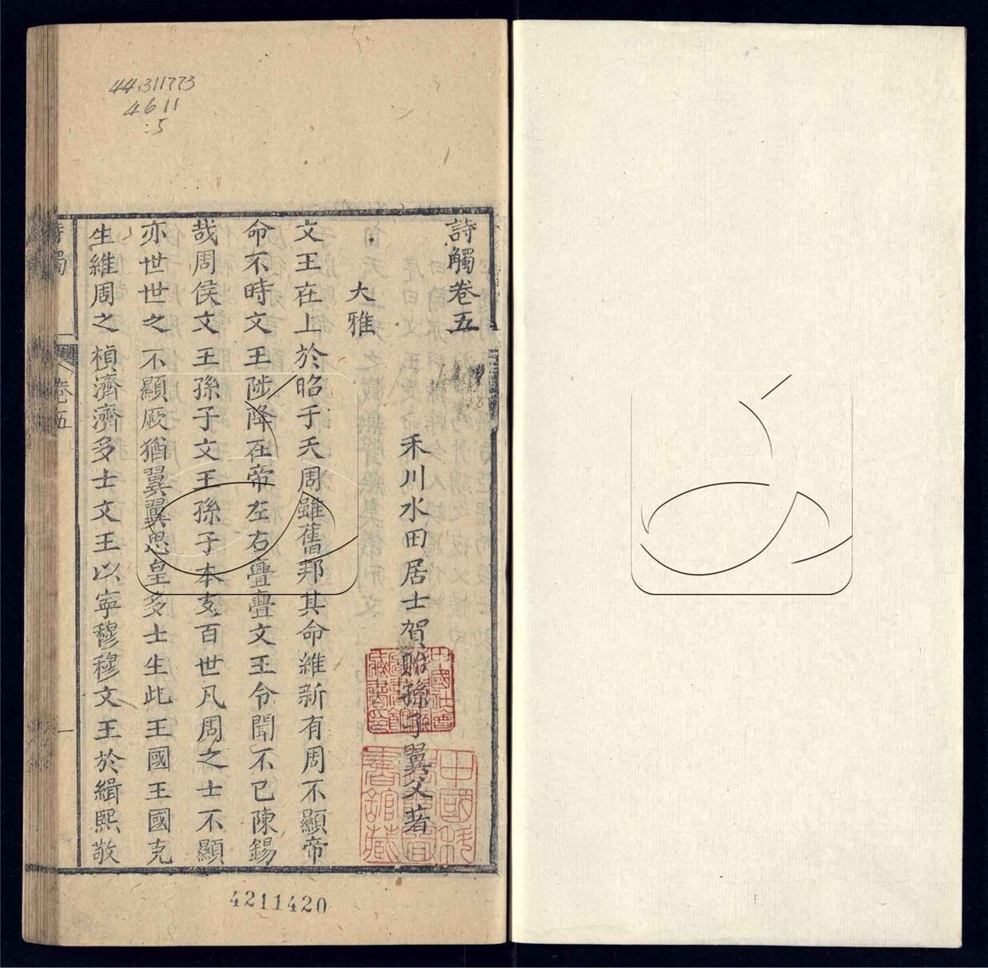 44311773
4611
:5
詩觸卷五
禾川水田居士賀貽孫子翼父著
大雅
文王在上於昭于天周雖舊邦其命維新有周不顯帝
命不時文王陟降在帝左右亹亹文王令聞不已陳錫
哉周侯文王孫子文王孫子本支百世凡周之士不顯
亦世世之不顯厥猶翼翼思皇多士生此王國王國克
生維周之楨濟濟多士文王以寧穆穆文王於緝熙敬
詩觸
卷五
一
4211420